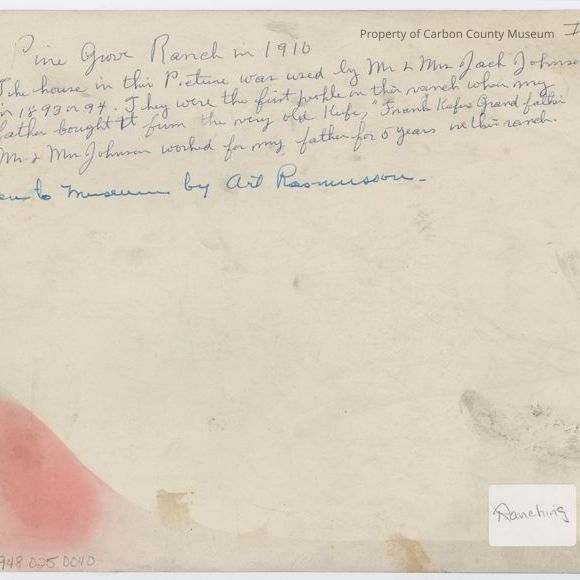 Property of Carbon County Museum
Pine Grove Ranch in 1910
The house in this Picture was used by Mr & Mrs Jack Johnson
in 1893 or 94. They were the first people on this ranch when my
father bought it from the very old Kefe, "Frank Kefes Grand father
Mr. & Mrs Johnson worked for my father for 5 years on this ranch.
to Museum by Art Rasmusson.
Ranching
948 025 0040